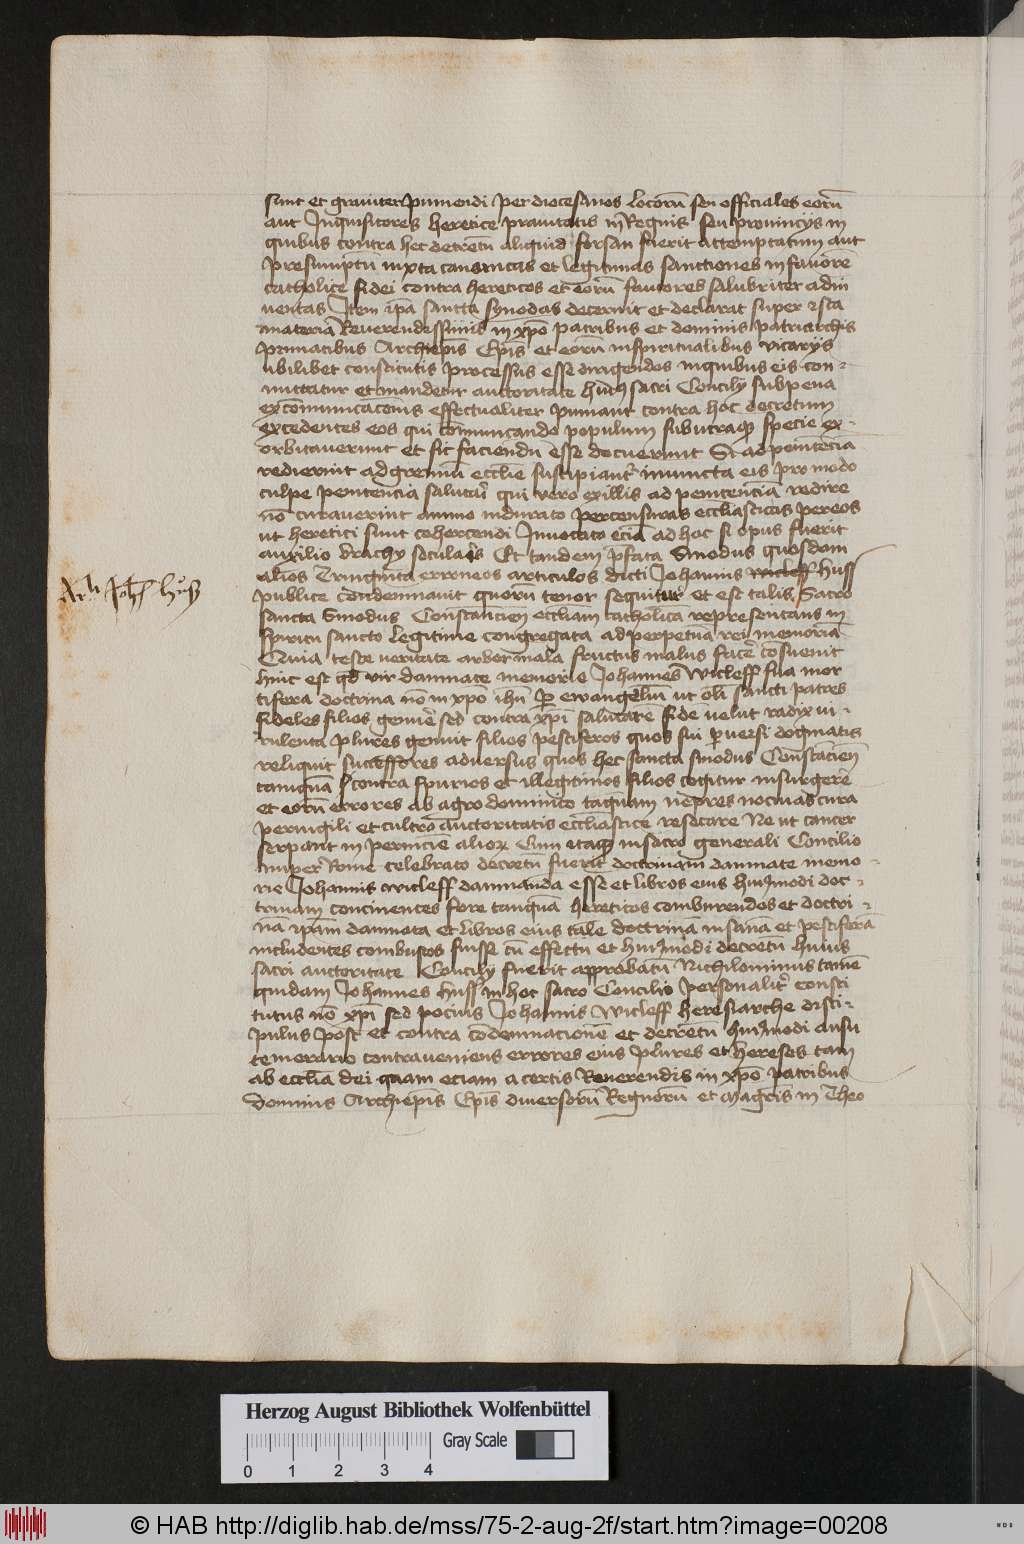 sunt et graviter puniendi per diocesanos locorū seu officiales eorū
aut Inquisitores heretice pravitatis in Regnis seu provincijs in
quibus contra hec decretū aliquid forsan fuerit attemptatum aut
presumptū iuxta canonicas et legitimas sanctiones in favorē
catholice fidei contra hereticos et eorū fautores salubriter adin
ventas Item ip̄a sancta synodus decernit et declarat super ista
materia Reverendissimis in xp̄o patribus et dominis patriarchis
primatibus Archiep̄is Ep̄is et eorū in spiritualibus vicarijs
ubilibet constitutis processus esse dirigendos in quibus eis con-
mittatur et mandetur auctoritate huius sacri Concilij sub pena
excōmunicacōnis effectualiter puniant contra hoc decretum
excedentes eos qui cōmunicando populum sub utraq̨ specie ex-
orbitaverunt et sic faciendū esse docuerunt Si ad penitēcia
redierint ad gremiū eccl̄ie suscipiant̄ iniuncta eis pro modo
culpe penitencia salutari qui vero ex illis ad penitenciā redire
nō curaverint animo indurato per censuras ecclīasticas per eos
ut heretici sunt cohercendi Invocato eciā ad hoc si opus fuerit
auxilio brachij secularis Et tandem p̄fata Sinodus quosdam
alios Triginta erroneos articulos dicti Johannis wicleff Huss
Ar̄li Joh̄ Huß
publice condemnavit quorū tenor sequitur et est talis Sacro
sancta Sinodus Constancien̄ eccl̄iam catholicā representans in
spiritu sancto legitime congregata ad perpetuā rei memoriā
Quia teste veritate arbor mala fructus malus facē cōsuevit
hinc est qd̄ vir damnate memorie Johannes Wicleff sua mor
tifera doctrina nō in xp̄o ih̄u p̄ ewangeliū ut olī sancti patres
fideles filios genuē sed contra xp̄i salutarē fidē velut radix vi-
rulenta plures genuit filios pestiferos quos sui p̄versi dogmatis
reliquit successores adversus quos hec sancta sinodus Constancien̄
tamquā contra spurios et illegitimos filios cogitur insurgere
et eorū errores ab agro dominico taq̄uam vepres nocivas cura
pervigili et cultro Auctoritatis ecclīastice resecare Ne ut cancer
serpant in perniciē alioꝝ Cum itaq̨ in sacro generali Concilio
nuper Rome celebrato decretū fuerit doctrinam damnate memo-
rie Johannis wicleff damnandā esse et libros eius hui9modi doc-
trinam continentes fore tanquā hereticos comburendos et doctri-
nā ip̄am damnata et libros eius tale doctrinā insanā et pestiferā
includentes combustos fuisse cū effectu et hui9modi decretū huius
sacri auctoritate Concilij fuerit approbatū Nichilominus tamē
quidam Johannes Huss in hoc sacro Concilio personalit̄ consti
tutus nō xp̄i sed pocius Johannis Wicleff heresiarche disci-
pulus post et contra condemnacionē et decretū hui9modi ausu
temerario contraveniens errores eius plures et hereses tam
ab ecclīa dei quam eciam a certis Reverendis in xp̄o patribus
Dominis Archiep̄is Ep̄is diversorū Regnorū et magr̄is in Theo
Herzog August Bibliothek Wolfenbüttel
Gray Scale
0 1 2 3 4
© HAB http://diglib.hab.de/mss/75-2-aug-2f/start.htm?image=00208